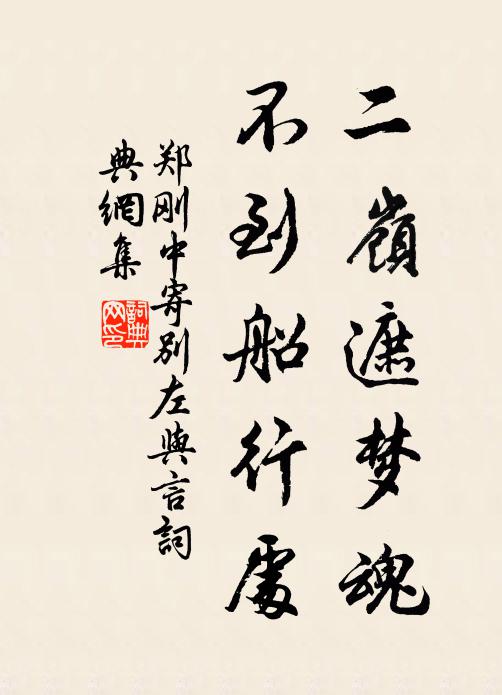 二嶺遮梦魂
不到船行處
郑刚中寄别左與言詞
典網集
詞典网印